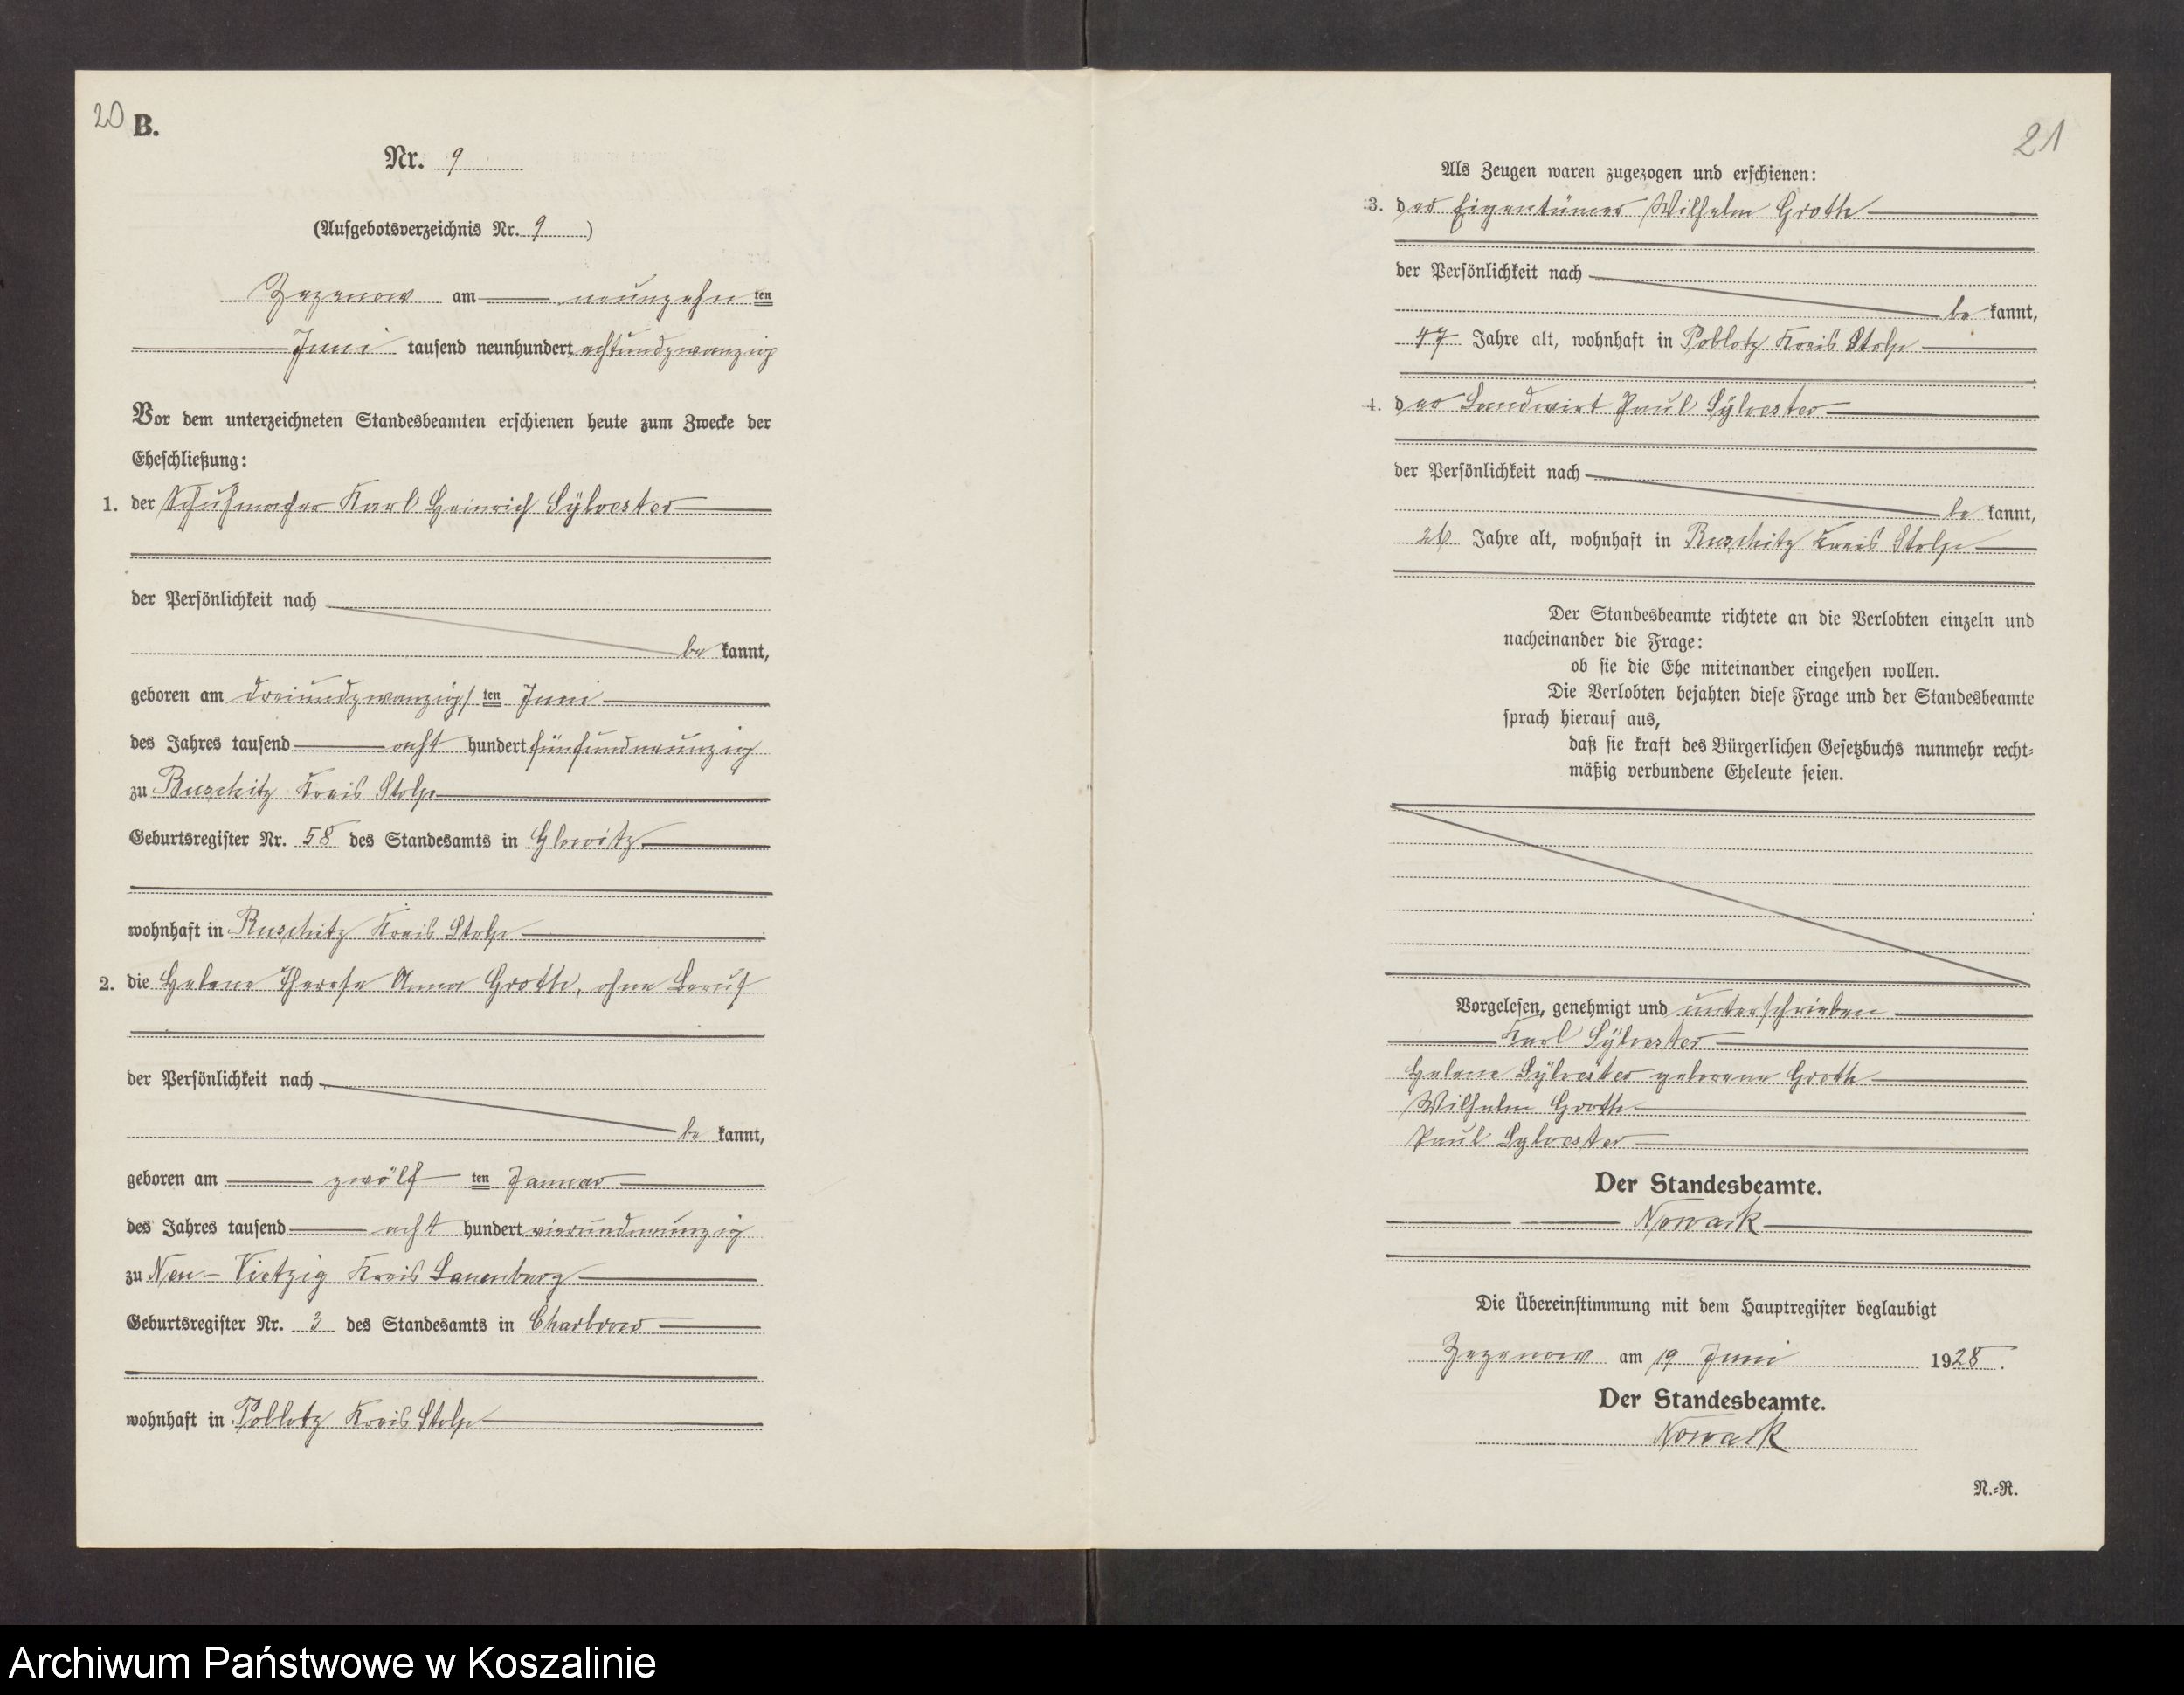 20
B.
Nr. 9
(Aufgebotsverzeichnis Nr. 9 )
Zezenow am neunzehn ten
Juni tausend neunhundert achtundzwanzig
Vor dem unterzeichneten Standesbeamten erschienen heute zum Zwecke der
Eheschließung:
1. der Schuhmacher Karl Heinrich Sÿlvester
der Persönlichkeit nach
be kannt,
geboren am dreiundzwanzigs ten Juni
des Jahres tausend acht hundert fünfundneunzig
zu Ruschitz Kreis Stolp
Geburtsregister Nr. 58 des Standesamts in Glowitz
wohnhaft in Ruschitz Kreis Stolp
2. die Helene Therese Anna Groth, ohne Beruf
der Persönlichkeit nach
be kannt,
geboren am zwölf ten Januar
des Jahres tausend acht hundert vierundneunzig
zu Neu-Vietzig Kreis Lauenburg
Geburtsregister Nr. 3 des Standesamts in Charbrow
wohnhaft in Poblotz Kreis Stolp
21
Als Zeugen waren zugezogen und erschienen:
3. der Eigentümer Wilhelm Groth
der Persönlichkeit nach
be kannt,
47 Jahre alt, wohnhaft in Poblotz Kreis Stolp
4. der Landwirt Paul Sÿlvester
der Persönlichkeit nach
be kannt,
26 Jahre alt, wohnhaft in Ruschitz Kreis Stolp
Der Standesbeamte richtete an die Verlobten einzeln und
nacheinander die Frage:
ob sie die Ehe miteinander eingehen wollen.
Die Verlobten bejahten diese Frage und der Standesbeamte
sprach hierauf aus,
daß sie kraft des Bürgerlichen Gesetzbuchs nunmehr recht-
mäßig verbundene Eheleute seien.
Vorgelesen, genehmigt und unterschrieben
Karl Sÿlvester
Helene Sÿlvester geborene Groth
Wilhelm Groth
Paul Sylvester
Der Standesbeamte.
Nowack
Die Übereinstimmung mit dem Hauptregister beglaubigt
Zezenow am 19 Juni 1928.
Der Standesbeamte.
Nowack
N.-R.
Archiwum Państwowe w Koszalinie